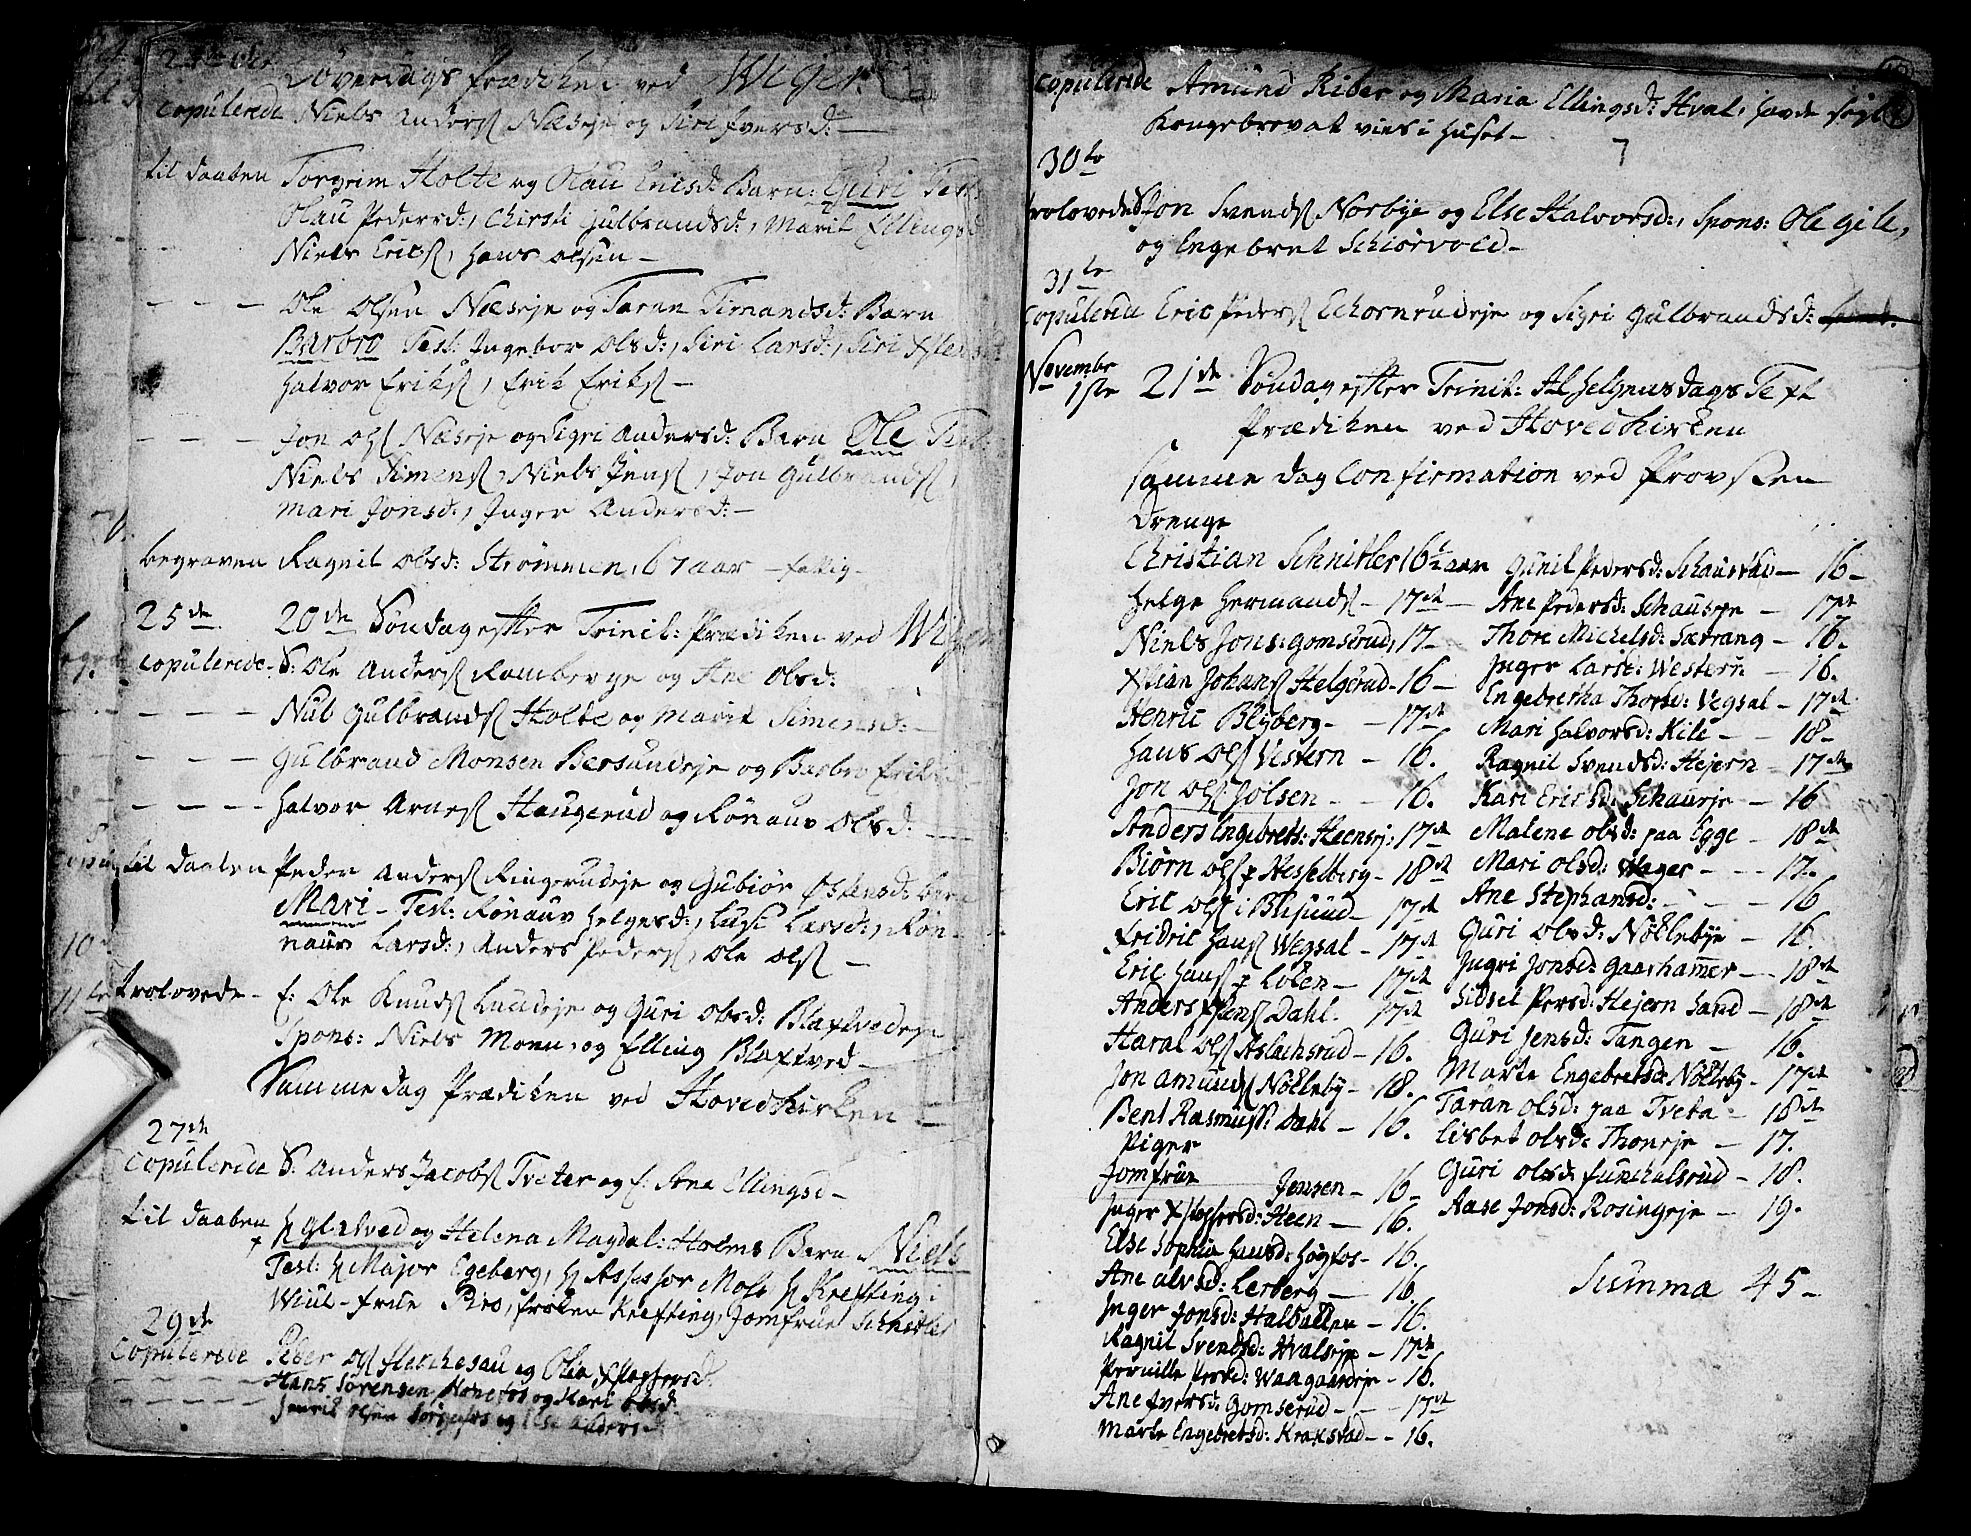 Löverdags Prædiken ved Wiger
Copulerede Niels Anders Næseje og Siri Iversd: —
til daaben Torgrim Holte og Olau Ericsd: Barn: Guri Test:
Olau Pedersd:, Chirsti Gulbrandsd:, Marit Ellingsd
Niels Erics, Hans Olsen —
— — — Ole Olsen Næseje og Taran Simansd: Barn
Barbro Test: Ingebor Olsd:, Siri Larsd:, Siri
Halvor Eriks, Erik Eriks —
— — — Jon Ols Næseje og Sigri Andersd: Barn Ole Test:
Niels Simens, Niels Jens, Jon Gulbrands,
Mari Jonsd:, Inger Andersd: —
begraven Ragnil Olsd: Strømmen, 67 aar — fattig —
25de 20de Søndag efter Trinit: Prædiken ved Wiger
Copulerede S: Ole Anders Rambergeje og Ane Olsd:
— — — Nub Gulbrands Holte og Marit Simensd: —
— — — Gulbrand Monsen Bersundeje og Barbro Eriks
— — — — Halvor Arnes Haugerud og Rønauv Olsd: —
til daaben Peder Anders Ringerudeje og Gubiør Østensd: barn
Mari — Test: Rønauv Helgesd:, Lusi Larsd:, Røn-
nauv Larsd:, Anders Peders, Ole Ols —
trolovede — E: Ole Knuds Lundeje og Guri Olsd: Blaxtvedeje
Spons: Niels Moen, og Elling Blaxtved —
Samme dag Prædiken ved Hovedkirken —
27de
Copulerede S: Anders Jacobs Tveter og E: Ane Ellingsd —
til daaben H Glatved og Helena Magdal: Holms Barn Niels
Test: H Major Egeberg, H Assessor Moss, H Krefting,
Wiul — frue Piro, frøken Krefting, Jomfrue Schnitler
29de
Copulerede Peder Ols
— — — — Hans Sørensen Hønefos og Kari Olsd
Henrik Olsen og Else Anders
Copulerede Amund Riber og Maria Ellingsd: Hval, havde
Kongebrev at vies i Huset —
30te
trolovede Jon Svends Norbye og Else Halvorsd:, Spons: Ole Gile,
og Engebret Schiørvold —
31te
Copulerede Eric Peders Echornrudeje og Sigri Gulbrandsd:
Novembr
1ste 21de Søndag efter Trinit: Al Helgensdags Text
Prædiken ved Hovedkirken
samme dag Confirmation ved Provsten
Drenge
Christian Schnitler 16½ aar Gunil Pedersd: — 16 —
Helge Hermands — 17de — Ane Pedersd: Schauseje — 17de
Niels Jons: Gomserud, 17 — Thore Michelsd: Sætrang — 16.
Xstian Johans Helgerud — 16 — Inger Larsd: Western — 16.
Henric Blyberg — — 17de Engebretha Thorsd: Vegsal — 17de
Hans Ols Vestern — 16. Mari Halvorsd: Kile — — 18 —
Jon Ols Jolsen — — 16. Ragnil Svendsd: Hejern — 17de
Anders Engebrets: Heensej: 17de Kari Ericsd: Schaueje — 16
Biørn Ols Hesselberg — 18de Malene Olsd: paa Egge — 18de
Eric Ols i Blijud — 17de Mari Olsd: Wager — — — 17.
Fridric Hans Wegsal — 17de Ane Stephansd: — — — 16
Eric Hans Løken — 17de Guri Olsd: Nøklebye — 16.
Anders Jens Dahl — 17de Ingri Jonsd: Gaarhamer — 18de
Haral Ols Aslachsrud — 16. Sidsel Persd: Hejern Sand — 18de
Jon Amunds Nøkleby — 18. Guri Jensd: Tangen — 16.
Bent Rasmuss: Dahl — 16. Marte Engebretsd: Nøkleby — 17de
Piger Taran Olsd: paa Tveta — 18de
Jomfrue Jensen — 16 — Lisbet Olsd: Thoneje — 17.
Inger Xstophersd: Heen — 16. Guri Olsd: Funchalsrud — 18.
Else Sophia Hansd: Høgfos — 16. Aase Jonsd: Rosingeje — 19.
Ane Alvsd: Lerberg — 16 Summa 45 —
Inger Jonsd: Halbakken — 16.
Ragnil Svendsd: Hvalseje — 17de
Pernille Persd: Waagaardeje — 16.
Ane Iversd: Gomserud — — — 17de
Marte Engebretsd: Krakstad — — 16.